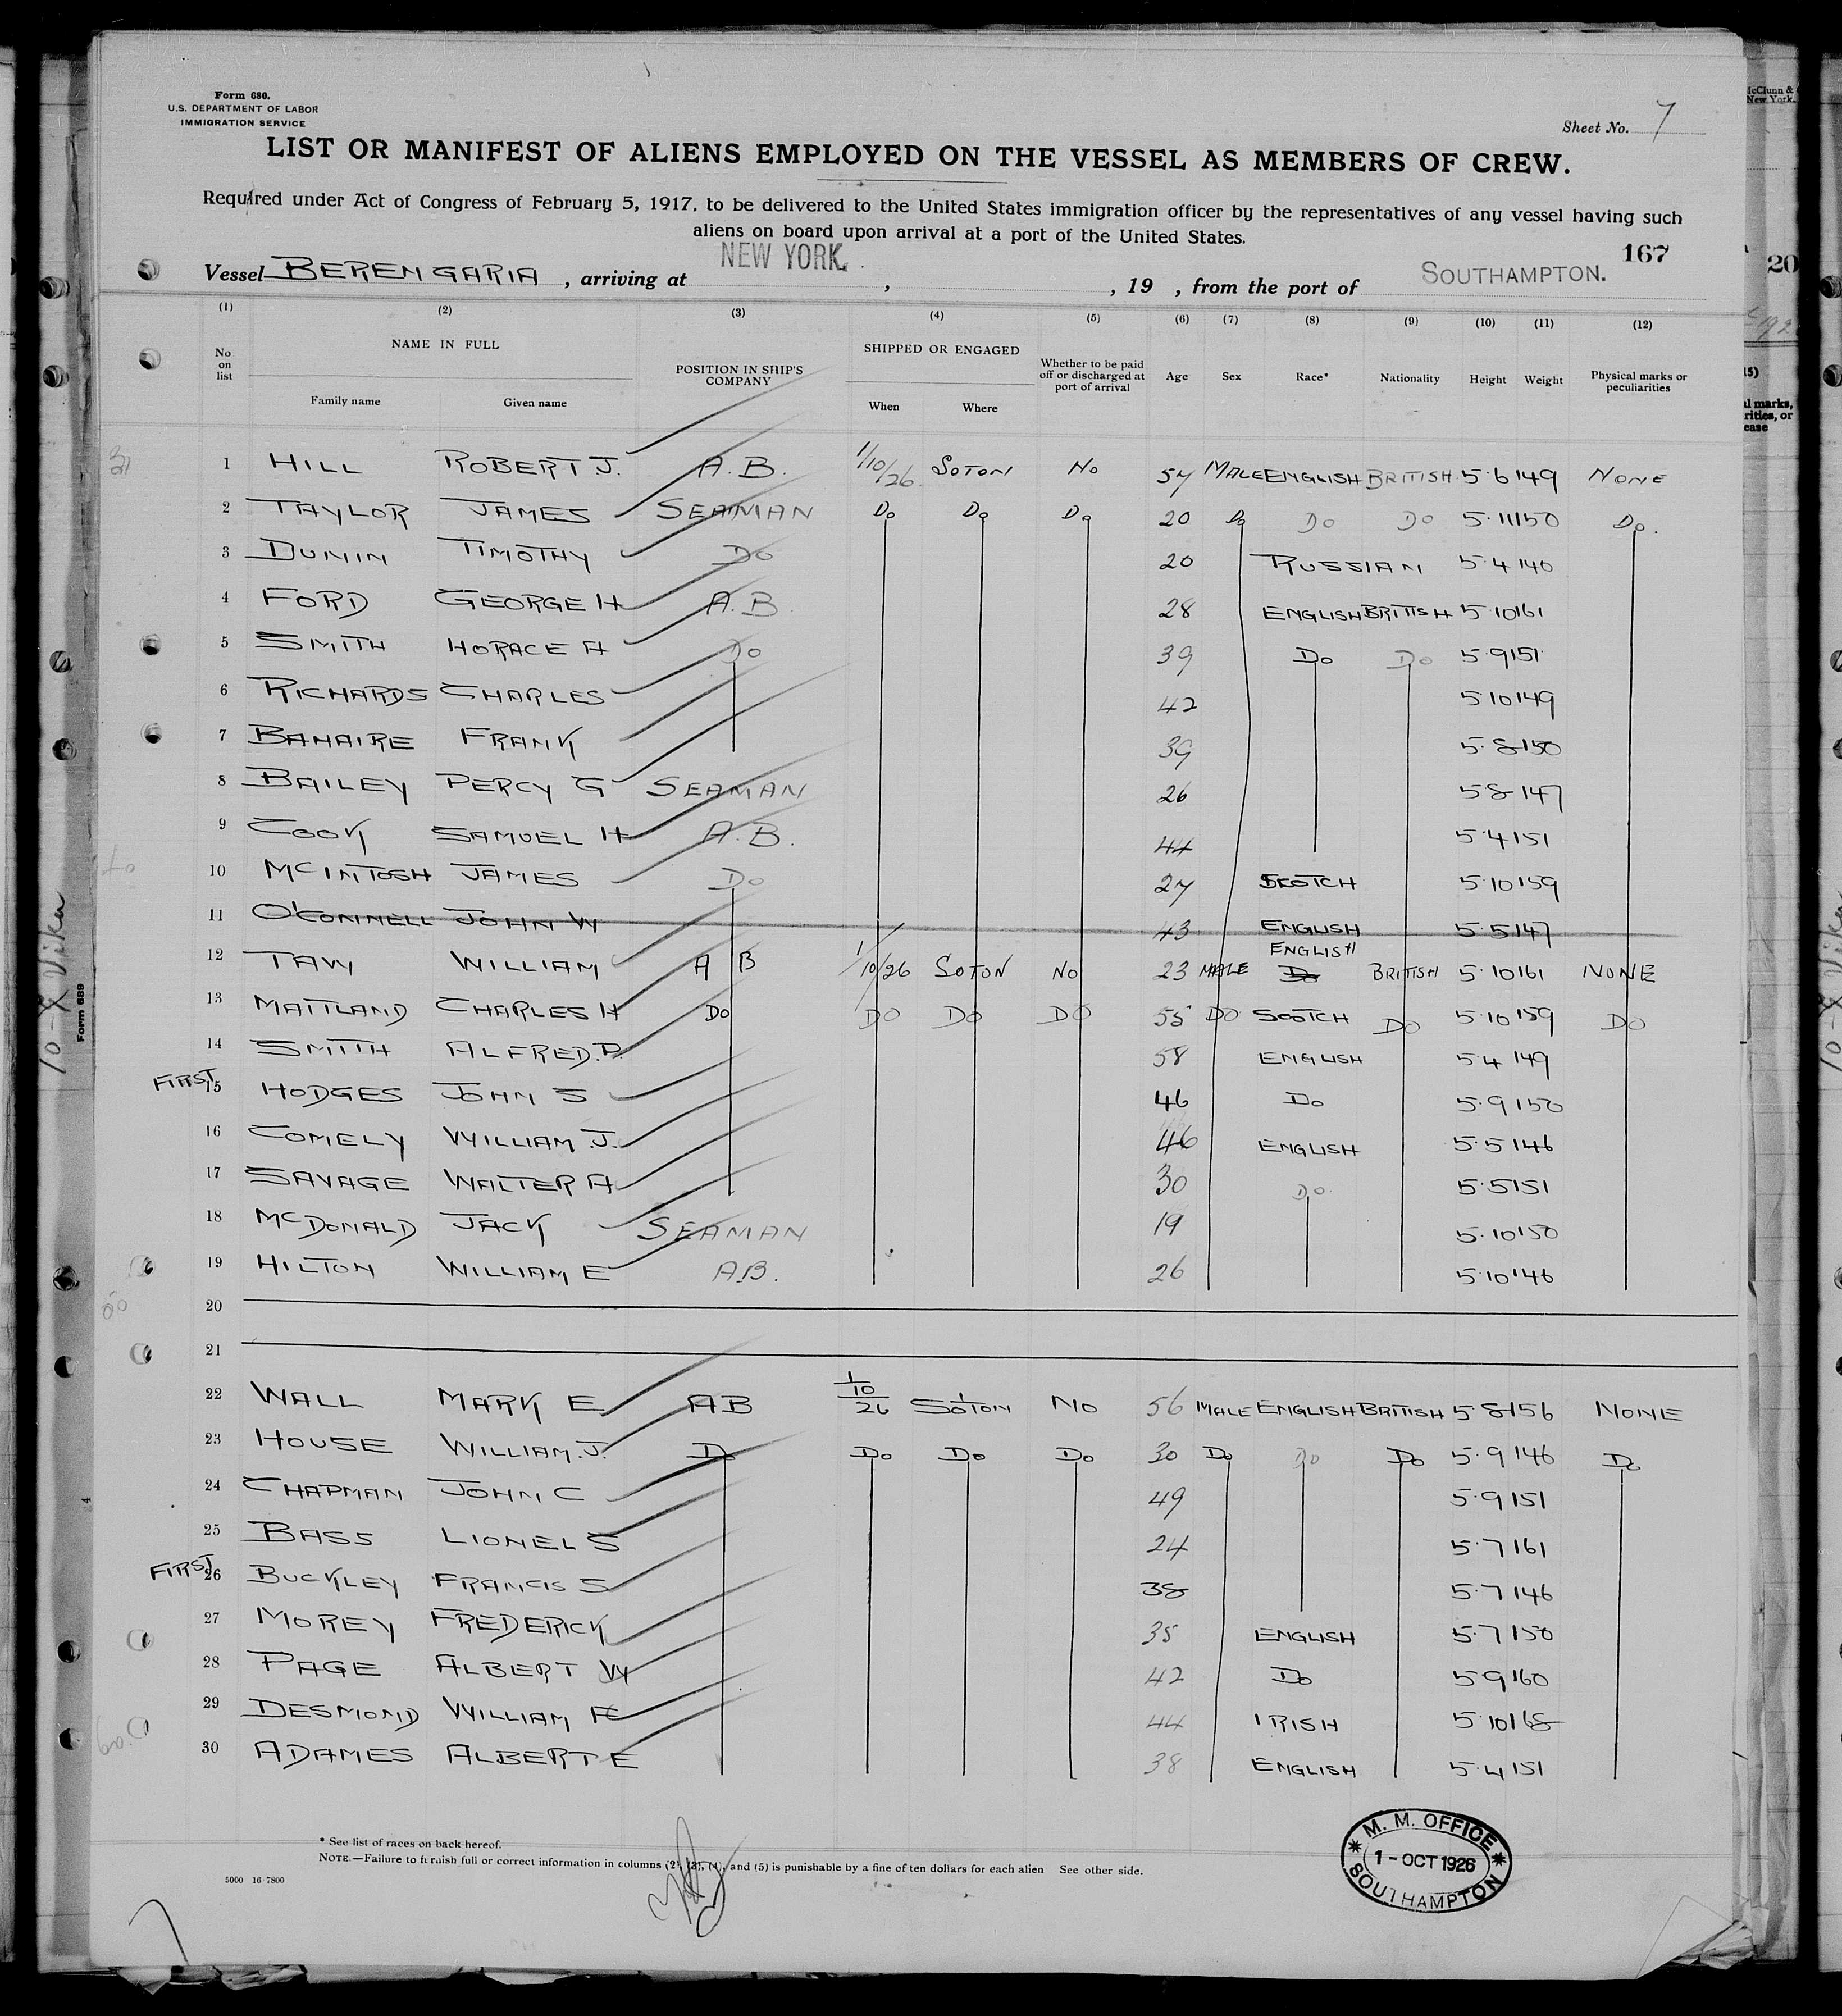 Form 680.
U.S. DEPARTMENT OF LABOR
IMMIGRATION SERVICE
Sheet No. 7
LIST OR MANIFEST OF ALIENS EMPLOYED ON THE VESSEL AS MEMBERS OF CREW.
Required under Act of Congress of February 5, 1917, to be delivered to the United States immigration officer by the representatives of any vessel having such
aliens on board upon arrival at a port of the United States.
167
Vessel BERENGARIA, arriving at NEW YORK. , , 19 , from the port of SOUTHAMPTON.
(1) (2) (3) (4) (5) (6) (7) (8) (9) (10) (11) (12)
No on list NAME IN FULL POSITION IN SHIP'S COMPANY SHIPPED OR ENGAGED Whether to be paid off or discharged at port of arrival Age Sex Race* Nationality Height Weight Physical marks or peculiarities
Family name Given name When Where
1 HILL ROBERT J. A.B. 1/10/26 SOTON No 54 MALE ENGLISH BRITISH 5·6 149 NONE
2 TAYLOR JAMES SEAMAN Do Do Do 20 Do Do Do 5·11 150 Do.
3 DUNIN TIMOTHY Do 20 RUSSIAN 5·4 140
4 FORD GEORGE H A.B. 28 ENGLISH BRITISH 5·10 161
5 SMITH HORACE A Do 39 Do Do 5·9 151
6 RICHARDS CHARLES 42 5·10 149
7 BANAIRE FRANK 39 5·8 150
8 BAILEY PERCY G SEAMAN 26 5·8 147
9 COOK SAMUEL H A.B. 44 5·4 151
10 MCINTOSH JAMES Do 27 SCOTCH 5·10 159
11 O'CONNELL JOHN W 43 ENGLISH 5·5 147
12 TAW WILLIAM A B 1/10/26 SOTON NO 23 MALE ENGLISH Do BRITISH 5·10 161 NONE
13 MAITLAND CHARLES H Do DO DO DO 55 DO SCOTCH DO 5·10 159 DO
14 SMITH ALFRED.P. 58 ENGLISH 5·4 149
FIRST 15 HODGES JOHN S 46 Do 5·9 150
16 COMELY WILLIAM J. 46 ENGLISH 5·5 146
17 SAVAGE WALTER A 30 Do. 5·5 151
18 MCDONALD JACK SEAMAN 19 5·10 150
19 HILTON WILLIAM E A.B. 26 5·10 146
20
21
22 WALL MARK E AB 1/10/26 SOTON NO 56 MALE ENGLISH BRITISH 5 8 156 NONE
23 HOUSE WILLIAM.J. Do Do Do Do 30 Do Do Do 5·9 146 Do
24 CHAPMAN JOHN C 49 5·9 151
25 BASS LIONEL S 24 5·7 161
FIRST 26 BUCKLEY FRANCIS S 38 5·7 146
27 MOREY FREDERICK 35 ENGLISH 5·7 150
28 PAGE ALBERT W 42 Do 5 9 160
29 DESMOND WILLIAM F 44 IRISH 5·10 168
30 ADAMES ALBERT E 38 ENGLISH 5·4 151
* See list of races on back hereof.
NOTE.—Failure to furnish full or correct information in columns (2), (3), (4), and (5) is punishable by a fine of ten dollars for each alien See other side.
5000 16-7800
M. M. OFFICE
1 - OCT 1926
SOUTHAMPTON
Form 689